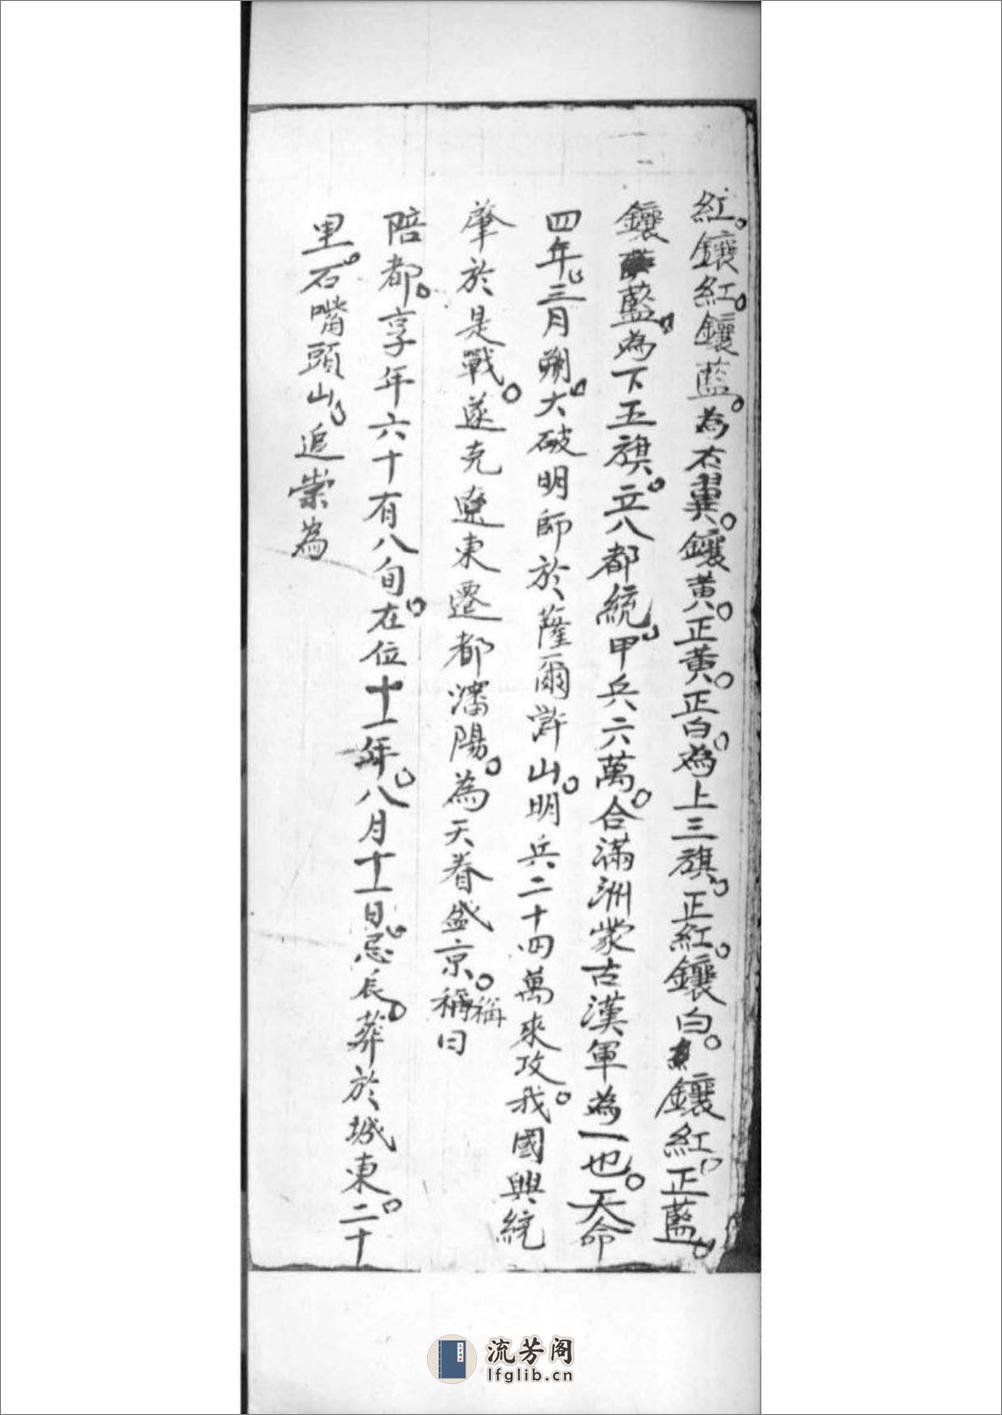 紅。鑲紅。鑲藍。為右翼。鑲黃。正黃。正白。為上三旗。正紅。鑲白。鑲紅。正藍。
鑲藍。為下五旗。立八都統。甲兵六萬。合滿洲蒙古漢軍為一也。天命
四年。三月朔。大破明師於薩爾滸山。明兵二十四萬來攻。我國興統
肇於是戰。遂克遼東遷都瀋陽。為天眷盛京。稱稱曰
陪都。享年六十有八旬。在位十一年。八月十一日。忌辰。葬於城東。二十
里。石嘴頭山。追崇為
流芳阁
lfglib.cn